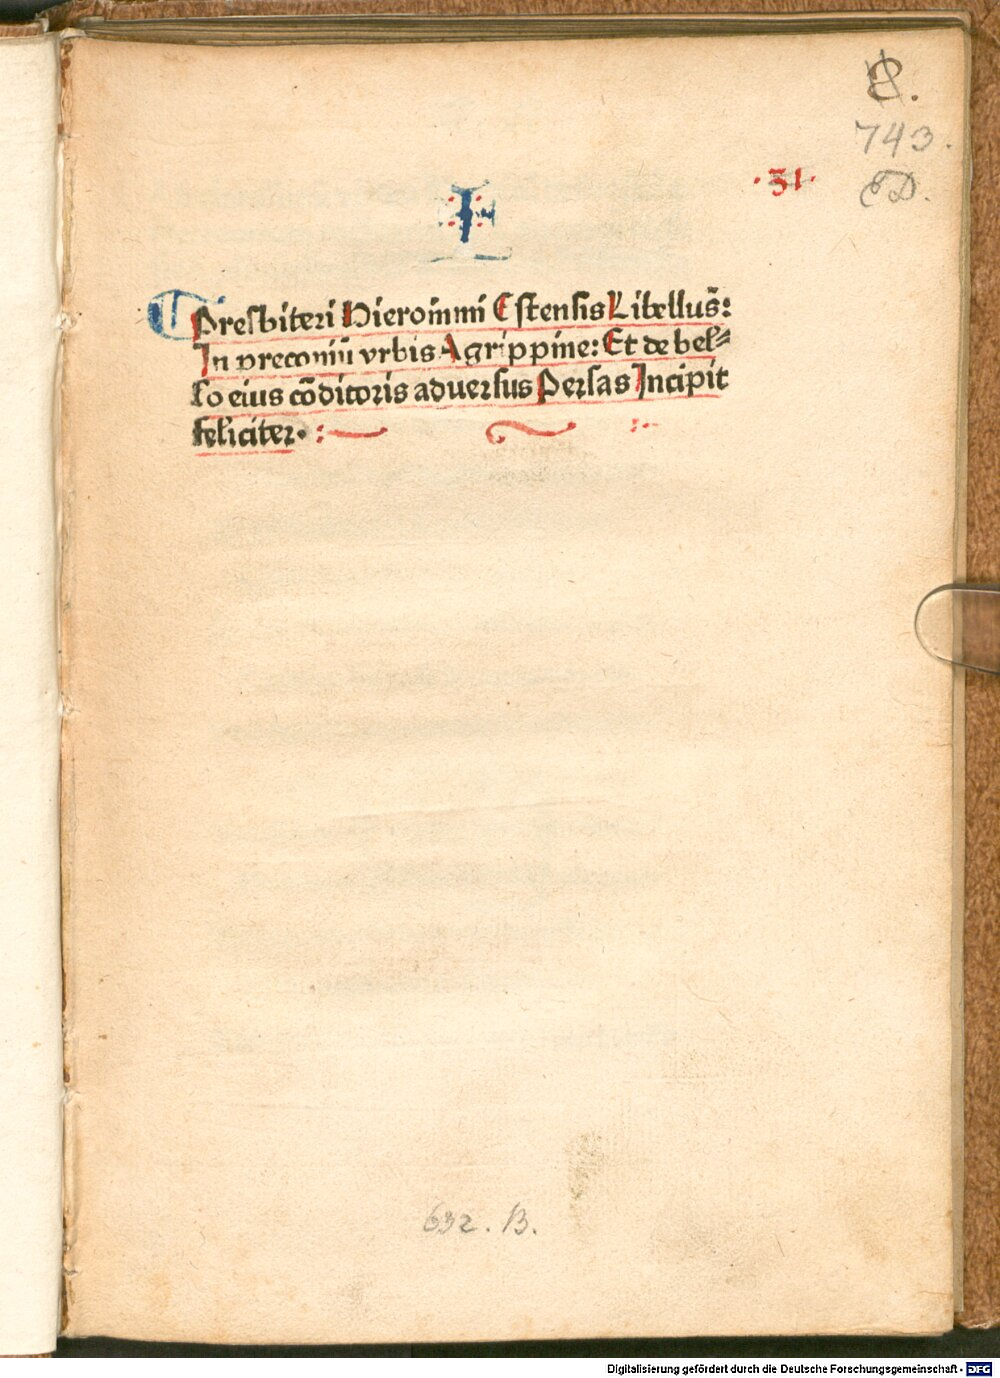 743.
·31·
F
Presbiteri Hieronimi Estensis Libellus̄:
In preconiū vrbis Agrippine: Et de bel⸗
lo eius cōditoris aduersus Persas Incipit
feliciter.
632. B.
Digitalisierung gefördert durch die Deutsche Forschungsgemeinschaft - DFG